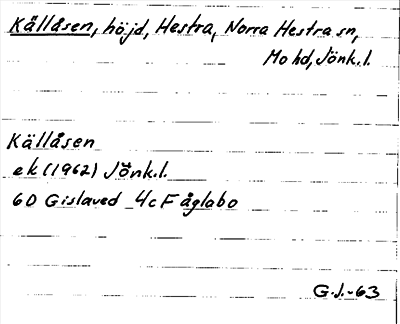 Källåsen, höjd, Hestra, Norra Hestra sn,
Mo hd, Jönk. l.
Källåsen
ek (1962) Jönk. l.
6D Gislaved 4c Fåglabo
G.J.-63